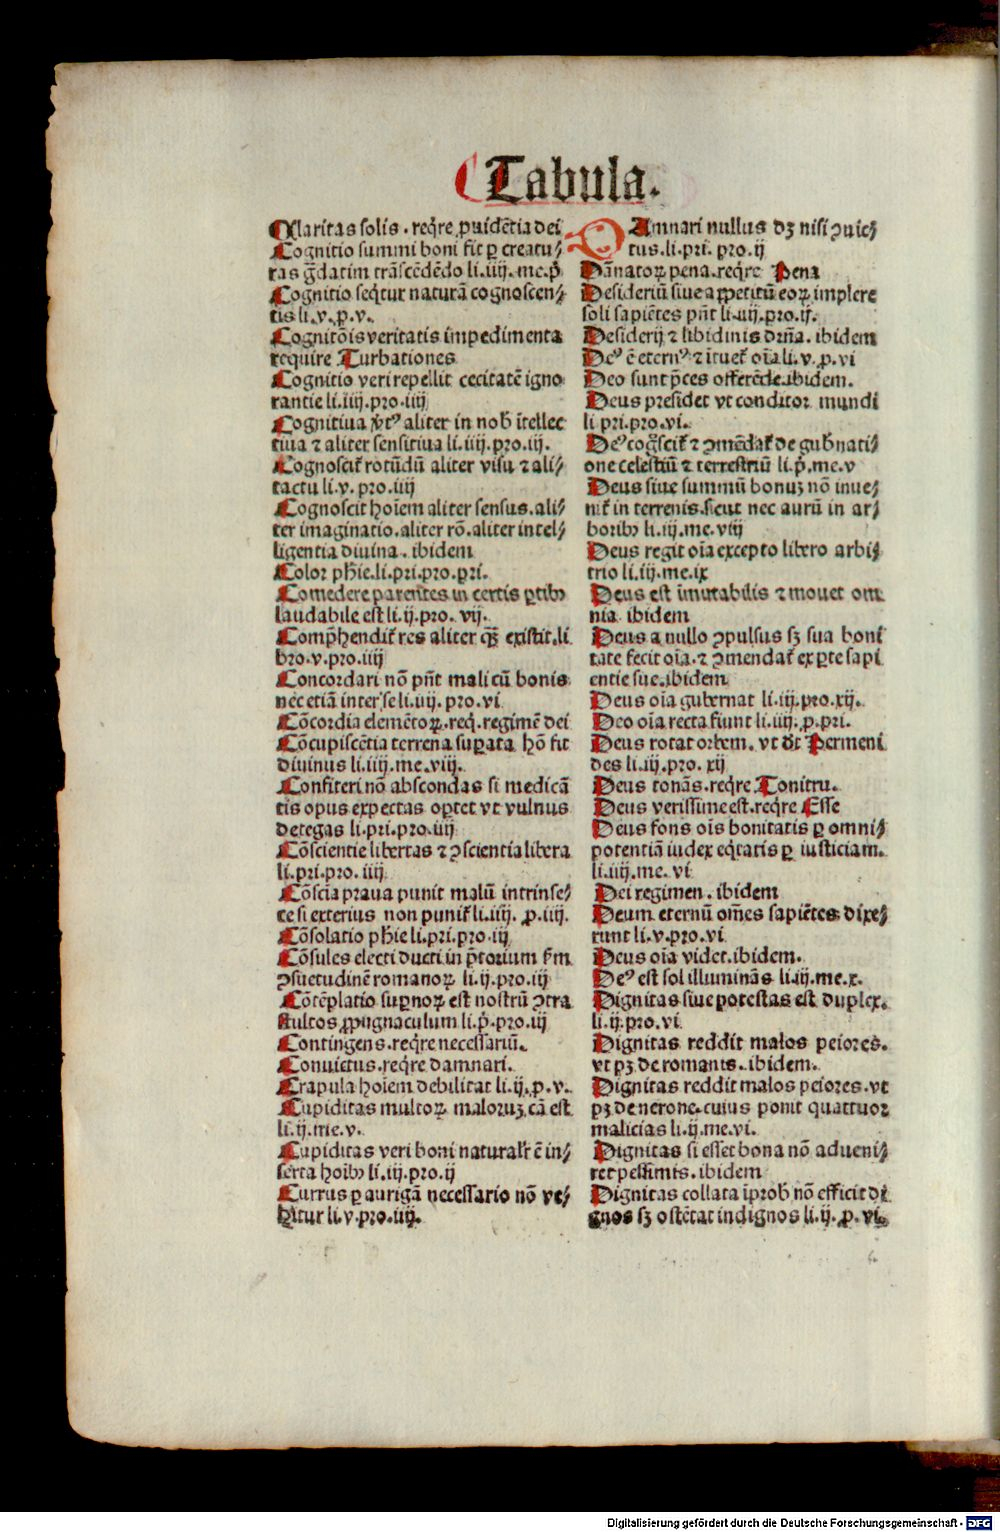 Tabula.
Claritas solis . reqͥre ꝓuidētia dei
Cognitio summi boni fit ꝑ creatu⸗
ras ḡdatim trāscēdēdo li.iiij. me.pͥ
Cognitio seqͥtur naturā cognoscen⸗
tis li.v. ꝓ.v.
Cognitōis veritatis impedimenta
require Turbationes
Cognitio veri repellit cecitatē igno
rantie li.iiij.pro.iiij
Cognitiua ꝟtꝰ aliter in nob̄ ītellec
tiua ⁊ aliter sensitiua li.iiij.pro.iij.
Cognoscit᷑ rotūdū aliter visu ⁊ ali⸗
tactu li.v. pro.iiij
Cognoscit hoīem aliter sensus.ali⸗
ter imaginatio.aliter rō.aliter intel⸗
ligentia diuina . ibidem
Color ph̄ie.li.pri.pro.pri.
Comedere parentes in certis ꝑtibꝰ
laudabile est li.ij.pro. vij.
Comp̄hendit᷑ res aliter qͣꝫ existit.li
bro.v.pro.iiij
Concordari nō pn̄t mali cū bonis
nec etiā inter se li.iiij.pro.vi
Cōcordia elemētoꝝ.req̄.regimē dei
Cōcupiscētia terrena suꝑata hō fit
diuinus li.iiij.me.viij.
Confiteri nō abscondas si medicā
tis opus expectas oꝑtet vt vulnus
detegas li.pri.pro.iiij
Cōscientie libertas ⁊ ꝯscientia libera
li.pri.pro. iiij
Cōscīa praua punit malū intrinse⸗
ce si exterius non punit᷑ li.iiij. ꝓ.iiij.
Cōsolatio ph̄ie li.pri.pro.iij
Cōsules electi ducti in p̄torium ẜm
ꝯsuetudinē romanoꝝ li.ij.pro.iij
Cōtēplatio suꝑnoꝝ est nostrū ꝯtra
stultos ꝓpugnaculum li.pͥ.pro.iij
Contingens.reqͥre necessariū.
Conuictus.reqͥre damnari.
Crapula hoīem debilitat li.ij.ꝓ.v.
Cupiditas multoꝝ maloruꝫ cā est
li.ij.me.v.
Cupiditas veri boni naturalr̄ ē in⸗
serta hoībꝰ li.iij.pro.ij
Currus ꝑ aurigā necessario nō ve⸗
hitur li.v.pro.iiij.
DAmnari nullus dꝫ nisi ꝯuic⸗
tus.li.pri. pro.ij
Dānatoꝝ pena.reqͥre Pena
Desideriū siue appetitū eoꝝ implere
soli sapiētes pn̄t li.iiij.pro.ij.
Desiderij ⁊ libidinis dr̄na. ibidem
Deꝰ ē eternꝰ ⁊ ītuet᷑ oīa li.v.ꝓ.vi
Deo sunt p̄ces offerēde.ibidem.
Deus presidet vt conditor mundi
li pri.pro.vi.
Deꝰ cog̊scit᷑ ⁊ ꝯmēdat᷑ de gub̄nati⸗
one celestiū ⁊ terrestriū li.pͥ.me.v
Deus siue summū bonuꝫ nō inue⸗
nit᷑ in terrenis.sicut nec aurū in ar⸗
boribꝰ li.iij.me.viij
Deus regit oīa excepto libero arbi⸗
trio li.iij.me.ix
Deus est īmutabilis ⁊ mouet om
nia ibidem
Deus a nullo ꝯpulsus sꝫ sua boni
tate fecit oīa.⁊ ꝯmendat᷑ ex ꝑte sapi
entie sue.ibidem
Deus oīa gubernat li.iij.pro.xij.
Deo oīa recta fiunt li.iiij.ꝓ.pri.
Deus rotat orbem. vt dt̄ Permeni
des li.iij.pro. xij
Deus tonās.reqͥre Tonitru.
Deus verissime est.reqͥre Esse
Deus fons oīs bonitatis ꝑ omni⸗
potentiā iudex eqͥtatis ꝑ iusticiam.
li.iiij.me. vi
Dei regimen . ibidem
Deum eternū om̄es sapiētes dixe⸗
runt li.v.pro.vi
Deus oīa videt.ibidem.
Deꝰ est sol illuminās li.iij.me.x.
Dignitas siue potestas est duplex.
li.ij.pro.vi
Dignitas reddit malos peiores.
vt pꝫ de romanis. ibidem.
Dignitas reddit malos peiores.vt
pꝫ de nerone.cuius ponit quattuor
malicias li.ij.me.vi.
Dignitas si esset bona nō adueni⸗
ret pessimis.ibidem
Dignitas collata īprob̄ nō efficit di
gnos sꝫ ostētat indignos li.ij. ꝓ. vi.
Digitalisierung gefördert durch die Deutsche Forschungsgemeinschaft - DFG